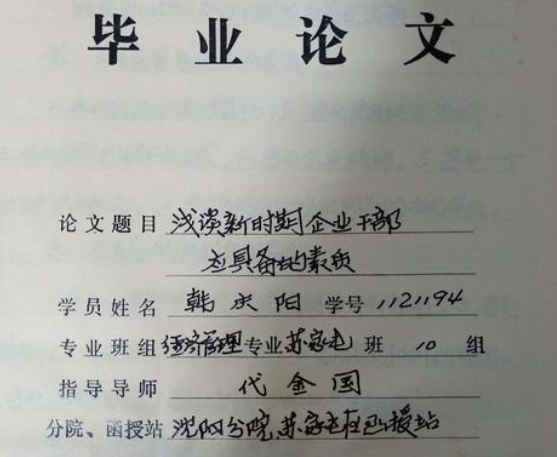 毕业论文
论文题目 浅谈新时期企业干部
应具备的素质
学员姓名 韩庆阳 学号 1121194
专业班组 经济管理 专业 苏家屯 班 10 组
指导导师 代金国
分院、函授站 沈阳分院苏家屯区函授站